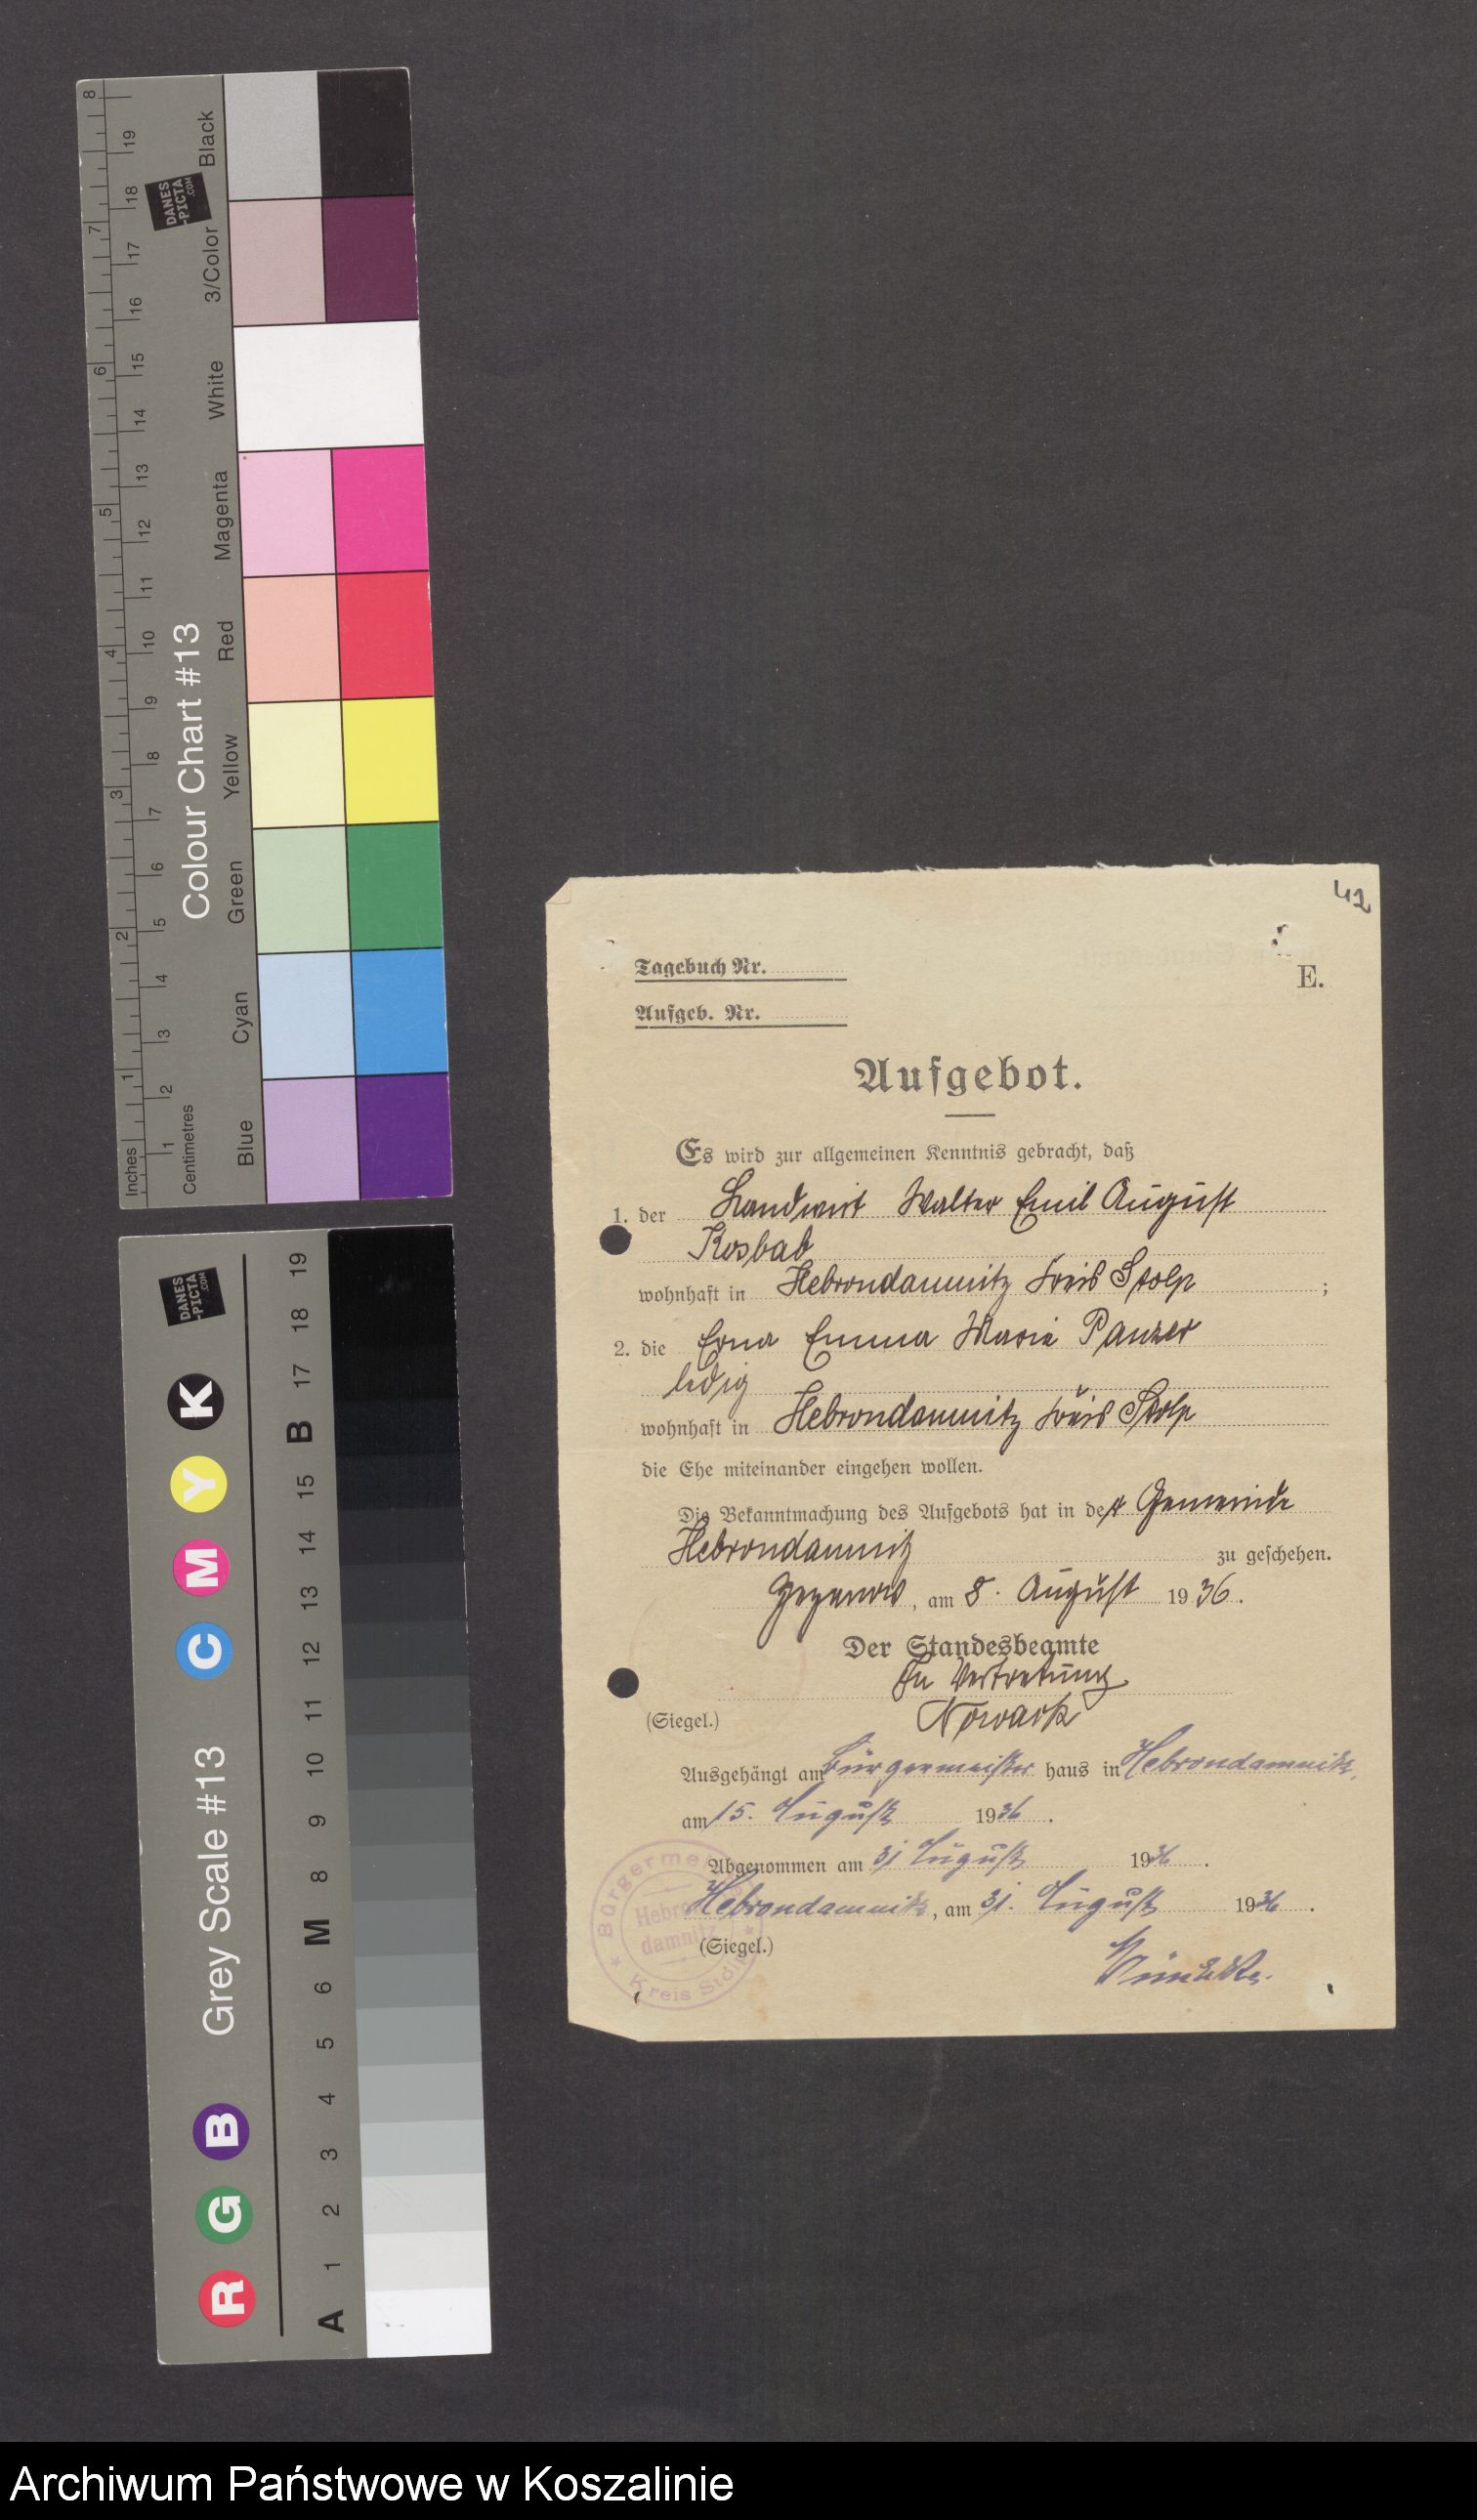 8
19
Black
18
DANES
-PICTA
.COM
7
17
3/Color
16
6
15
White
14
13
5
12
Magenta
11
Colour Chart #13
10
Red
4
9
8
Yellow
3
7
6
Green
5
2
4
3
Cyan
1
2
1
Inches
Centimetres
Blue
DANES
-PICTA
.COM
19
18
17
B
15
14
13
12
11
10
9
8
M
6
5
4
3
2
1
A
K
Y
M
C
Grey Scale #13
B
G
R
42
Tagebuch Nr.
E.
Aufgeb. Nr.
Aufgebot.
Es wird zur allgemeinen Kenntnis gebracht, daß
1. der Landwirt Walter Emil August
Kosbab
wohnhaft in Hebrondamnitz Kreis Stolp ;
2. die Erna Emma Marie Panzer
ledig
wohnhaft in Hebrondamnitz Kreis Stolp
die Ehe miteinander eingehen wollen.
Die Bekanntmachung des Aufgebots hat in der Gemeinde
Hebrondamnitz zu geschehen.
Gezenow, am 8. August 1936.
Der Standesbeamte
In Vertretung
Nowack
(Siegel.)
Ausgehängt am Bürgermeister haus in Hebrondamnitz,
am 15. August 1936.
Abgenommen am 31 August 1936.
Hebrondamnitz, am 31. August 1936.
(Siegel.)
Bürgermei
Hebron
damnitz
Kreis Stolp
Archiwum Państwowe w Koszalinie